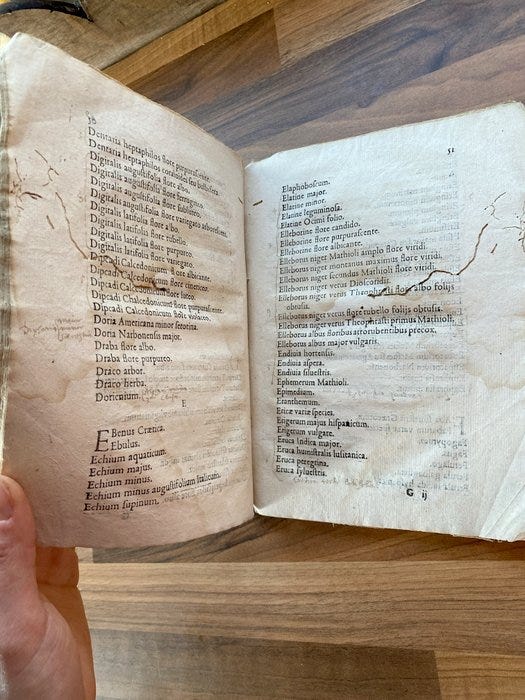 50
Dentaria heptaphilos flore purpurascente.
Dentaria heptaphilos coraloides seu bulbifera.
Digitalis angustifolia flore albo.
Digitalis angustifolia flore ferrugineo.
Digitalis angustifolia flore subluteo.
Digitalis angustifolia flore variegato arborescens.
Digitalis latifolia flore albo.
Digitalis latifolia flore rubello.
Digitalis latifolia flore purpureo.
Digitalis latifolia flore variegato.
Dipcadi Calcedonicum flore albicante.
Dipcadi Calcedonicum flore cinericeo.
Dipcadi Calcedonicum flore luteo.
Dipcadi Chalcedonicum flore purpurascente.
Dipcadi Calcedonicum flore violaceo.
Doria Americana minor serotina.
Doria Narbonensis major.
Draba flore albo.
Draba flore purpureo.
Draco arbor.
Draco herba.
Doricnium.
E
EBenus Cretica.
Ebulus.
Echium aquaticum.
Echium majus.
Echium minus.
Echium minus augustifolium
Echium supinum.
51
Elaphoboscum.
Elatine major.
Elatine minor.
Elatine leguminosa.
Elatine Ocimi folio.
Elleborine flore candido.
Elleborine flore purpurascente.
Elleborine flore albicante.
Elleborus niger Mathioli amplo flore viridi.
Elleborus niger montanus maximus flore viridi.
Elleborus niger secundus Mathioli flore viridi.
Elleborus niger verus Dioscoridis.
Elleborus niger verus Theophrasti flore albo folijs
obtusis.
Elleborus niger verus flore rubello folijs obtusis.
Elleborus niger verus Theophrasti primus Mathioli.
Elleborus albus floribus atrorubentibus præcox.
Elleborus albus major vulgaris.
Endivia hortensis.
Endivia aspera.
Endivia silvestris.
Ephemerum Mathioli.
Epimedium.
Eranthemum.
Ericæ variæ species.
Erigerum majus hispanicum.
Erigerum vulgare.
Eruca Indica major.
Eruca humestralis lusitanica.
Eruca peregrina.
Eruca sylvestris.
G ij